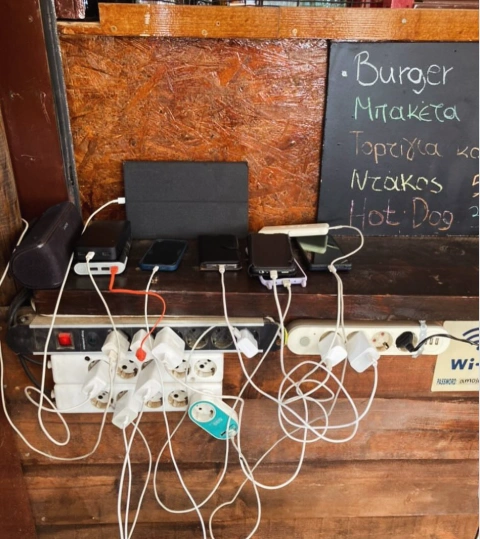 Burger
Μπακέτα
Τορτίγια κο
Ντάκος 5
Hot Dog 2
Wi-
PASSWORD